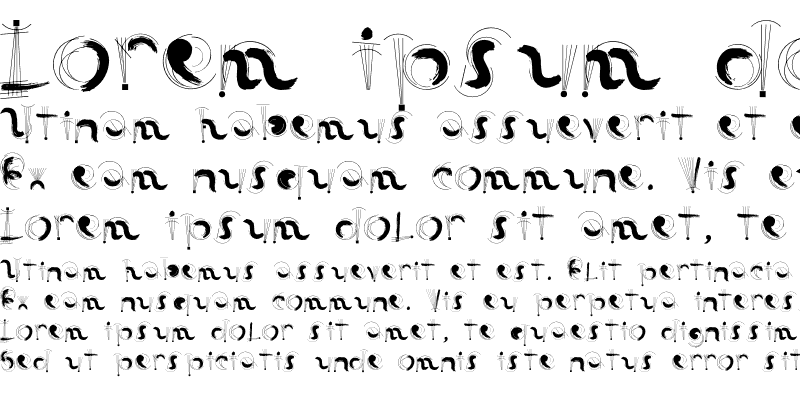 Lorem ipsum do
Utinam habemus assueverit et e
Ex eam nusquam commune. Vis e
Lorem ipsum dolor sit amet, te
Utinam habemus assueverit et est. Elit pertinacia
Ex eam nusquam commune. Vis eu perpetua interes
Lorem ipsum dolor sit amet, te quaestio dignissim
Sed ut perspiciatis unde omnis iste natus error sit